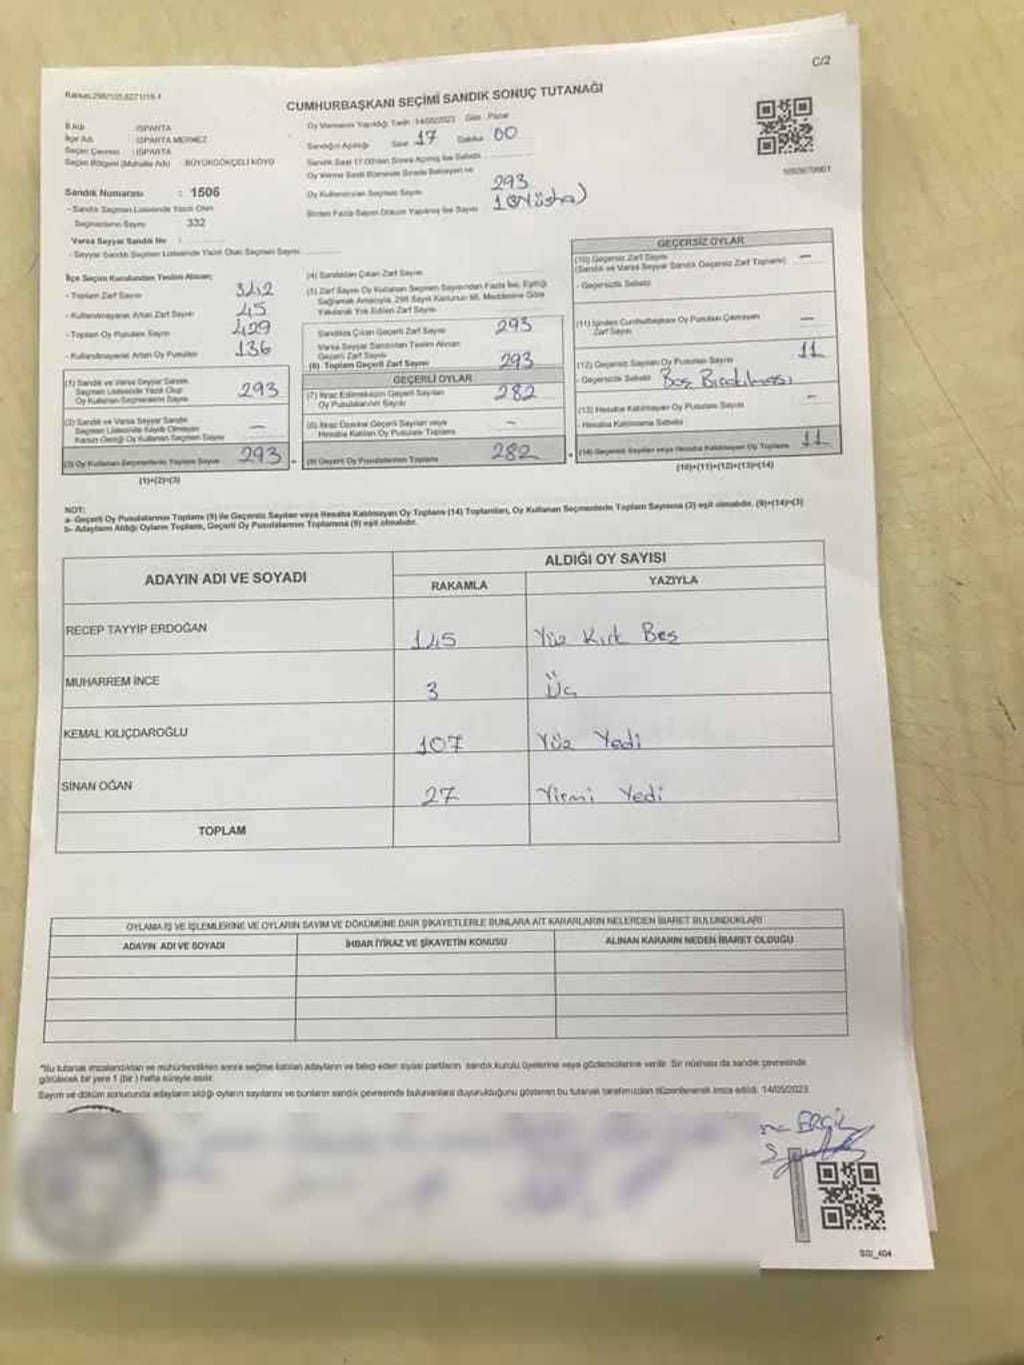 C/2
CUMHURBAŞKANI SEÇİMİ SANDIK SONUÇ TUTANAĞI
İl Adı : ISPARTA
İlçe Adı : ISPARTA MERKEZ
Seçim Çevresi : ISPARTA
Seçim Bölgesi (Mahalle Adı) : BÜYÜKGÖKÇELİ KÖYÜ
Sandık Numarası : 1506
- Sandık Seçmen Listesinde Yazılı Olan
Seçmenlerin Sayısı 332
Varsa Seyyar Sandık No :
- Seyyar Sandık Seçmen Listesinde Yazılı Olan Seçmen Sayısı
Oy Vermenin Yapıldığı Tarih : 14/05/2023 Gün : Pazar
Sandığın Açıldığı Saat 17 Dakika 00
Oy Kullanan Seçmen Sayısı 293
Birden Fazla Sayım Döküm Yapılmış İse Sayısı 1 (Nüsha)
İlçe Seçim Kurulundan Teslim Alınan;
- Toplam Zarf Sayısı 342
- Kullanılmayarak Artan Zarf Sayısı 45
- Toplam Oy Pusulası Sayısı 429
- Kullanılmayarak Artan Oy Pusulası 136
(1) Sandık ve Varsa Seyyar Sandık
Seçmen Listesinde Yazılı Olup
Oy Kullanan Seçmenlerin Sayısı 293
(2) Sandık ve Varsa Seyyar Sandık
Seçmen Listesinde Kayıtlı Olmayan
Kanun Gereği Oy Kullanan Seçmen Sayısı —
(3) Oy Kullanan Seçmenlerin Toplam Sayısı 293
(1)+(2)=(3)
(4) Sandıktan Çıkan Zarf Sayısı
(5) Zarf Sayısı Oy Kullanan Seçmen Sayısından Fazla İse, Eşitliği
Sağlamak Amacıyla, 298 Sayılı Kanunun 98. Maddesine Göre
Yakılarak Yok Edilen Zarf Sayısı
Sandıkta Çıkan Geçerli Zarf Sayısı 293
Varsa Seyyar Sandıktan Teslim Alınan
Geçerli Zarf Sayısı
(6) Toplam Geçerli Zarf Sayısı 293
GEÇERLİ OYLAR
(7) İtiraz Edilmeksizin Geçerli Sayılan
Oy Pusulalarının Sayısı 282
(8) İtiraz Üzerine Geçerli Sayılan veya
Hesaba Katılan Oy Pusulası Toplamı —
(9) Geçerli Oy Pusulalarının Toplamı 282
GEÇERSİZ OYLAR
(10) Geçersiz Zarf Sayısı
(Sandık ve Varsa Seyyar Sandık Geçersiz Zarf Toplamı) —
- Geçersizlik Sebebi
(11) İçinden Cumhurbaşkanı Oy Pusulası Çıkmayan
Zarf Sayısı —
(12) Geçersiz Sayılan Oy Pusulası Sayısı 11
- Geçersizlik Sebebi Boş Bırakılması
(13) Hesaba Katılmayan Oy Pusulası Sayısı —
- Hesaba Katılmama Sebebi
(14) Geçersiz Sayılan veya Hesaba Katılmayan Oy Toplamı 11
(10)+(11)+(12)+(13)=(14)
NOT:
a- Geçerli Oy Pusulalarının Toplamı (9) ile Geçersiz Sayılan veya Hesaba Katılmayan Oy Toplamı (14) Toplamları, Oy Kullanan Seçmenlerin Toplam Sayısına (3) eşit olmalıdır. (9)+(14)=(3)
b- Adayların Aldığı Oyların Toplamı, Geçerli Oy Pusulalarının Toplamına (9) eşit olmalıdır.
ADAYIN ADI VE SOYADI
ALDIĞI OY SAYISI
RAKAMLA YAZIYLA
RECEP TAYYİP ERDOĞAN 145 Yüz Kırk Beş
MUHARREM İNCE 3 Üç
KEMAL KILIÇDAROĞLU 107 Yüz Yedi
SİNAN OĞAN 27 Yirmi Yedi
TOPLAM
OYLAMA İŞ VE İŞLEMLERİNE VE OYLARIN SAYIM VE DÖKÜMÜNE DAİR ŞİKAYETLERLE BUNLARA AİT KARARLARIN NELERDEN İBARET BULUNDUKLARI
ADAYIN ADI VE SOYADI İHBAR İTİRAZ VE ŞİKAYETİN KONUSU ALINAN KARARIN NEDEN İBARET OLDUĞU
*Bu tutanak imzalandıktan ve mühürlendikten sonra seçime katılan adayların ve talep eden siyasi partilerin sandık kurulu üyelerine veya gözlemcilerine verilir. Bir nüshası da sandık çevresinde
görülecek bir yere 1 (bir) hafta süreyle asılır.
Sayım ve döküm sonucunda adayların aldığı oyların sayılarını ve bunların sandık çevresinde bulunanlara duyurulduğunu gösteren bu tutanak tarafımızdan düzenlenerek imza edildi. 14/05/2023